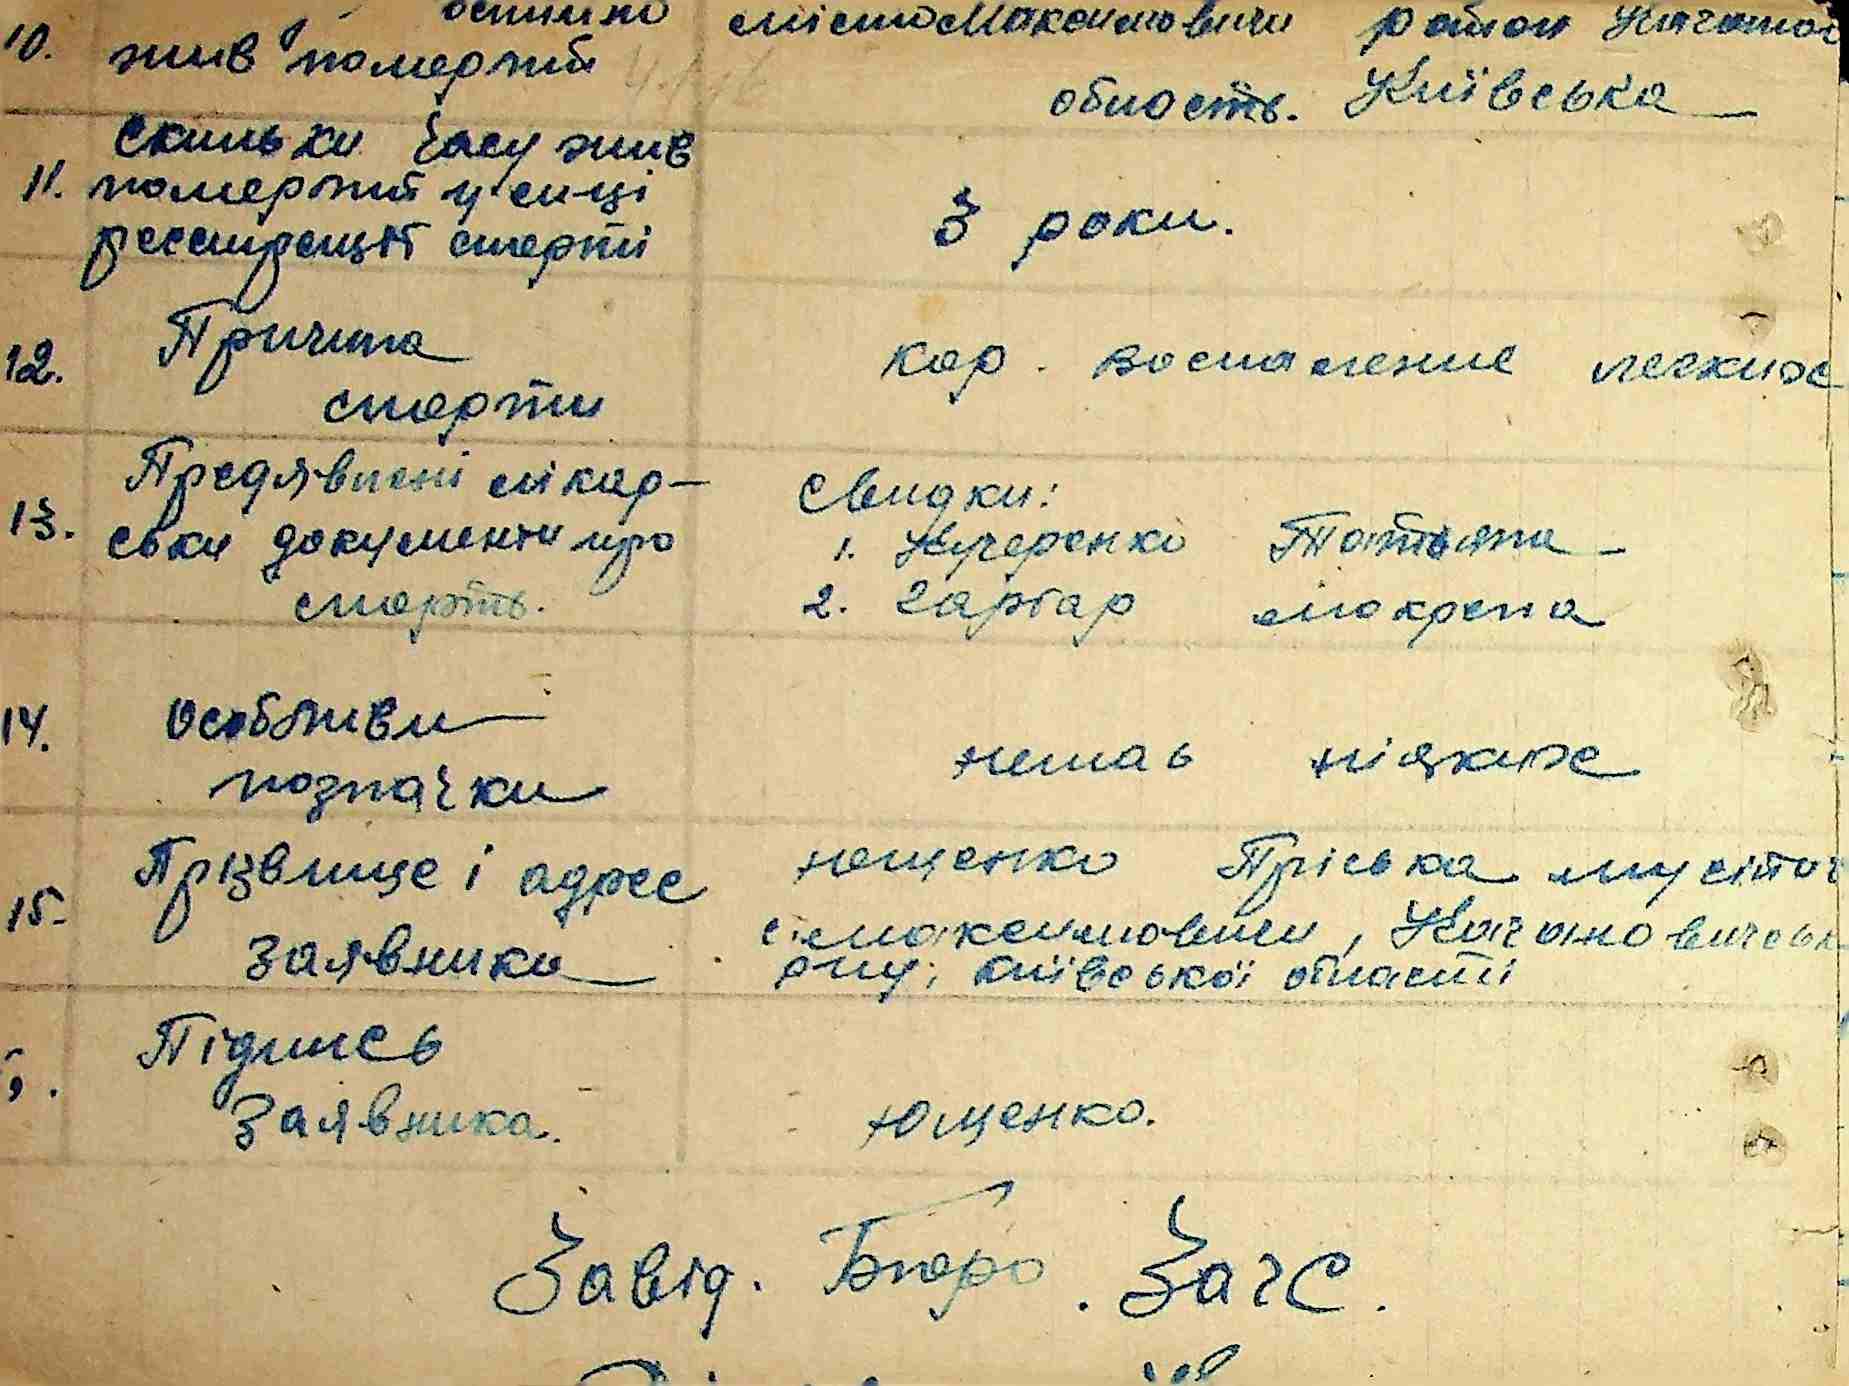 остнно місто Максимовичи район
10. жив померший
область. Київська
скильки часу жив
11. померший у сиці
реєстрації смерті
3 роки.
12. Причина
смерти
кор. воспаление легких
Предявлені лікар-
13. ськи документи про
смерть.
Свидки:
1. Кучеренко Татьяна
2. Гаргар Мокрена
14. Особливи
позначки
немає ніяких
15. Прізвище і адрес
заявника
Ющенко Пріська
с. Максимовичи, Кагановичськ
р-ну, Київської області
Підпись
Заявника.
Ющенко.
Завід. Бюро. Загс.